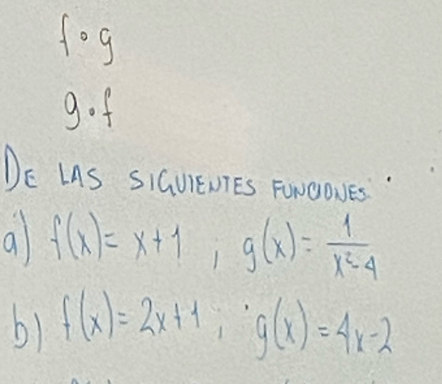 f∘g
g∘f
DE LAS SIGUIENTES FUNCIONES.
a) f(x)= x+1 ; g(x)= 1/(x²-4)
b) f(x)= 2x+1 ; g(x)=4x-2